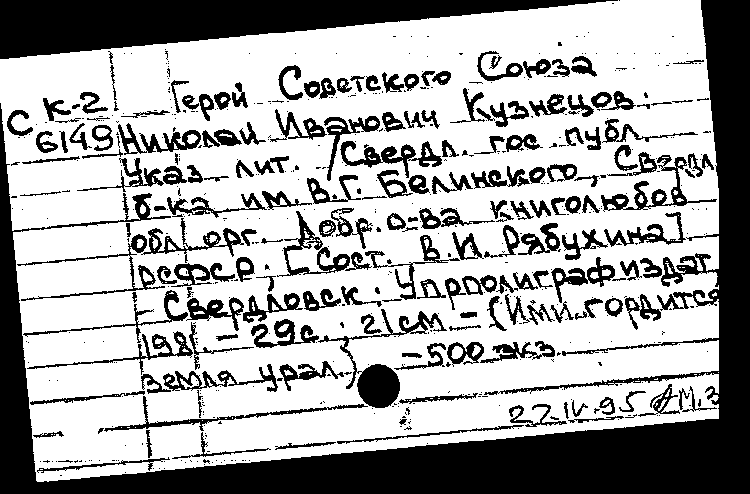 Герой Советского Союза
С К-2 Николай Иванович Кузнецов:
6149 Указ. лит. / Свердл. гос. публ.
б-ка им. В.Г. Белинского, Свердл.
обл. орг. Добр. о-ва книголюбов
РСФСР; [Сост. В.И. Рябухина].
- Свердловск: Упрполиграфиздат,
1981. - 29 с.; 21 см. - (Ими гордится
земля урал.) - 500 экз.
27.IV.95